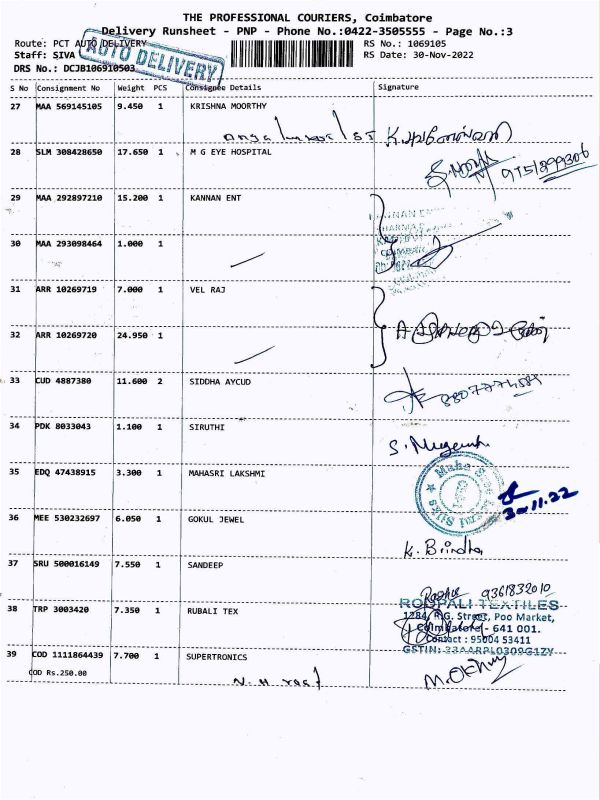 THE PROFESSIONAL COURIERS, Coimbatore
Delivery Runsheet - PNP - Phone No.:0422-3505555 - Page No.:3
Route: PCT AUTO DELIVERY RS No.: 1069105
Staff: SIVA RS Date: 30-Nov-2022
DRS No.: DCJB106910503
AUTO DELIVERY
S No Consignment No Weight PCS Consignee Details Signature
27 MAA 569145105 9.450 1 KRISHNA MOORTHY
28 SLM 308428650 17.650 1 M G EYE HOSPITAL
9751899306
29 MAA 292897210 15.200 1 KANNAN ENT
30 MAA 293098464 1.000 1
31 ARR 10269719 7.000 1 VEL RAJ
32 ARR 10269720 24.950 1
33 CUD 4887380 11.600 2 SIDDHA AYCUD
34 PDK 8033043 1.100 1 SIRUTHI
35 EDQ 47438915 3.300 1 MAHASRI LAKSHMI
Maha Sri
Silks
30.11.22
36 MEE 530232697 6.050 1 GOKUL JEWEL
K. Brindha
37 SRU 500016149 7.550 1 SANDEEP
9361832010
38 TRP 3003420 7.350 1 RUBALI TEX
ROOPALI TEXTILES
1284, R.G. Street, Poo Market,
Coimbatore - 641 001.
Contact : 95004 53411
GSTIN: 33AARPL0309G1ZY
39 COD 1111864439 7.700 1 SUPERTRONICS
COD Rs.250.00